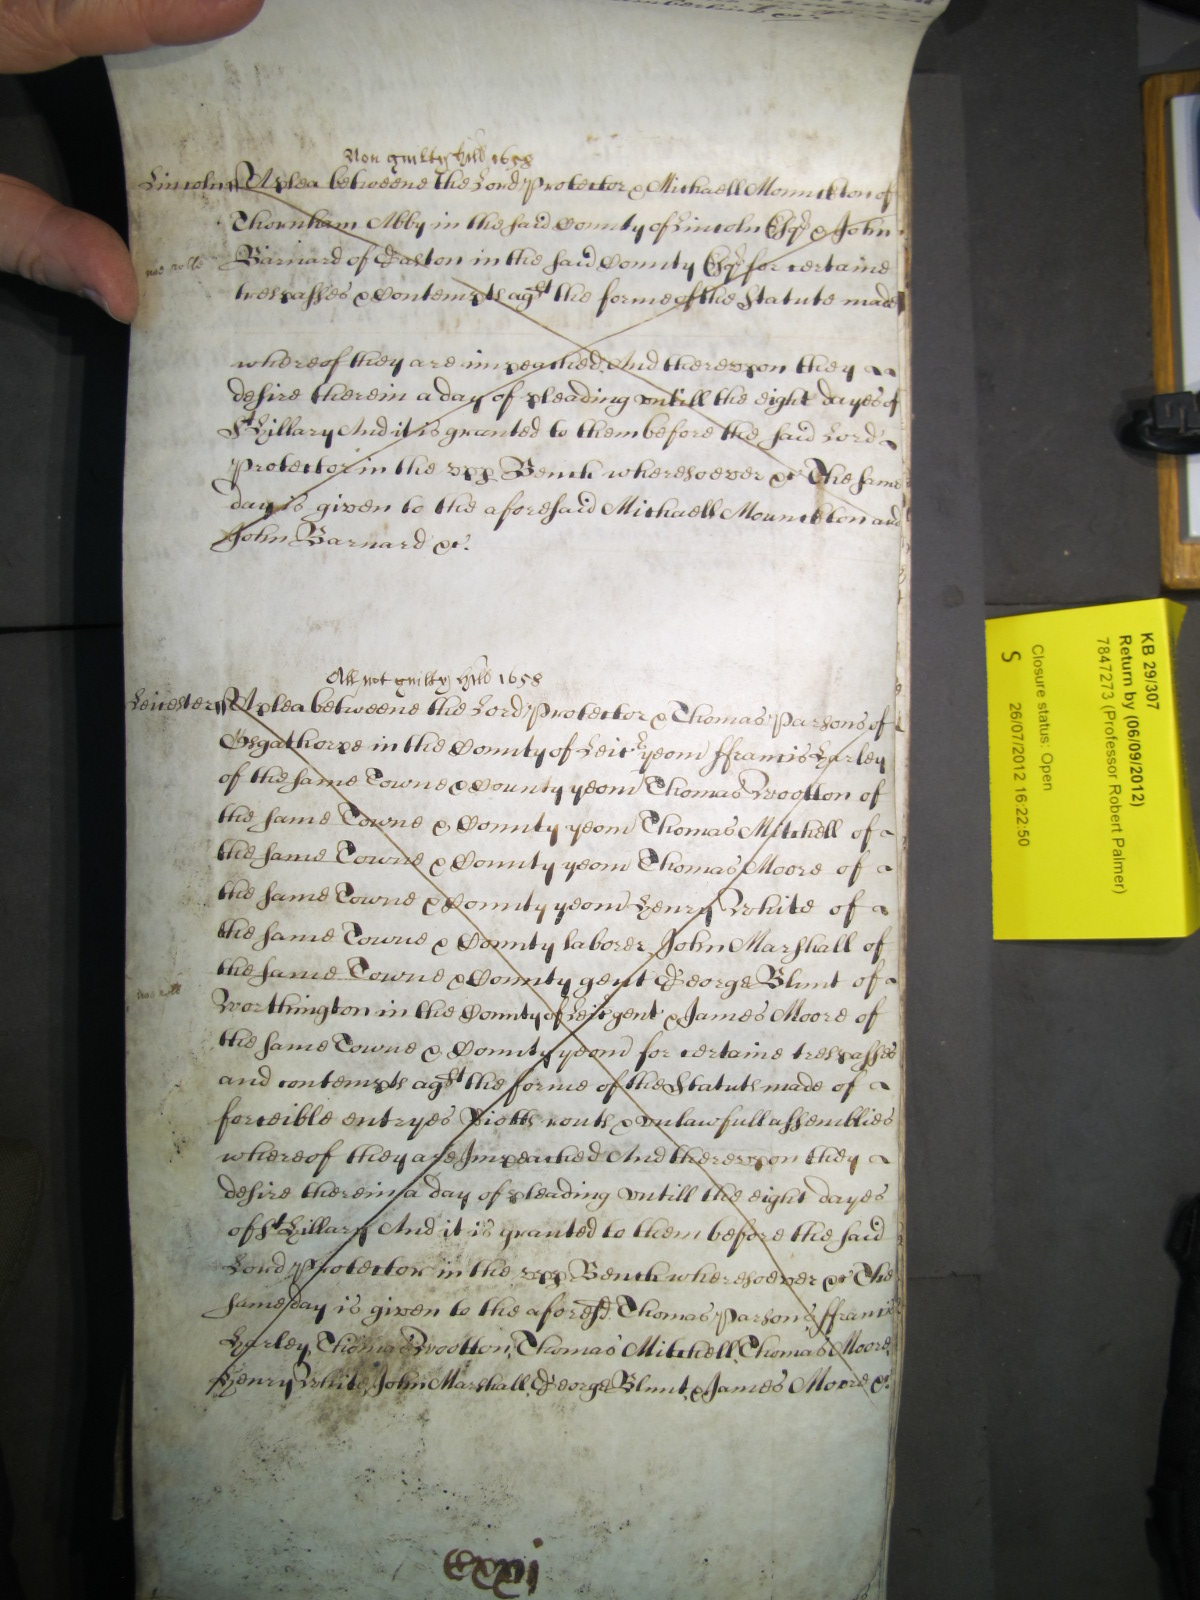 Non guilty Hill 1658
Lincoln ss A plea betweene the Lord Protector & Michaell Mounckton of
Thornham Abby in the said County of Lincoln Esqr & John
Barnard of in the said County Esqr for certaine
trespasses & Contempts agst the forme of the Statute made
whereof they are impeached And thereupon they
desire therein a day of pleading untill the eight dayes of
St Hillary And it is granted to them before the said Lord
Protector in the upp Bench wheresoever &c The same
day is given to the aforesaid Michaell Mounckton and
John Barnard &c.
All not guilty Hill 1658
Leicester ss A plea betweene the Lord Protector & Thomas Parsons of
Osgathorpe in the County of Leic yeom ffrancis Harley
of the same Towne & County yeom Thomas Wootton of
the same Towne & County yeom Thomas Mitchell of
the same Towne & County yeom Thomas Moore of
the same Towne & County yeom Henry White of
the same Towne & County laborer John Marshall of
the same Towne & County gent George Blunt of
Worthington in the County of Leic gent & James Moore of
the same Towne & County yeom for certaine trespasses
and contempts agst the forme of the Statute made of
forceible entryes Riotts routs & unlawfull assemblies
whereof they are Impeached And thereupon they
desire therein a day of pleading untill the eight dayes
of St Hillary And it is granted to them before the said
Lord Protector in the upp Bench wheresoever &c The
same day is given to the aforesd Thomas Parsons ffrancis
Harley, Thomas Wootton, Thomas Mitchell, Thomas Moore,
Henry White, John Marshall, George Blunt, & James Moore &c
KB 29/307
Return by (06/09/2012)
7847273 (Professor Robert Palmer)
Closure status: Open
S 26/07/2012 16:22:50